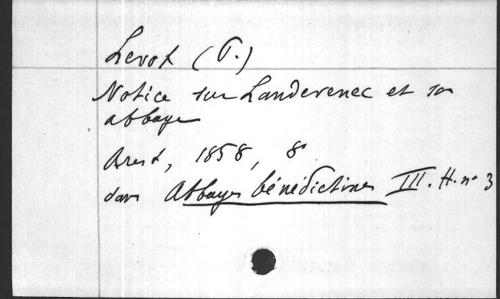 Levot (P.)
Notice sur Landevenec et son
abbaye
Brest, 1858, 8°
dans Abbayes bénédictines III. H. n° 3